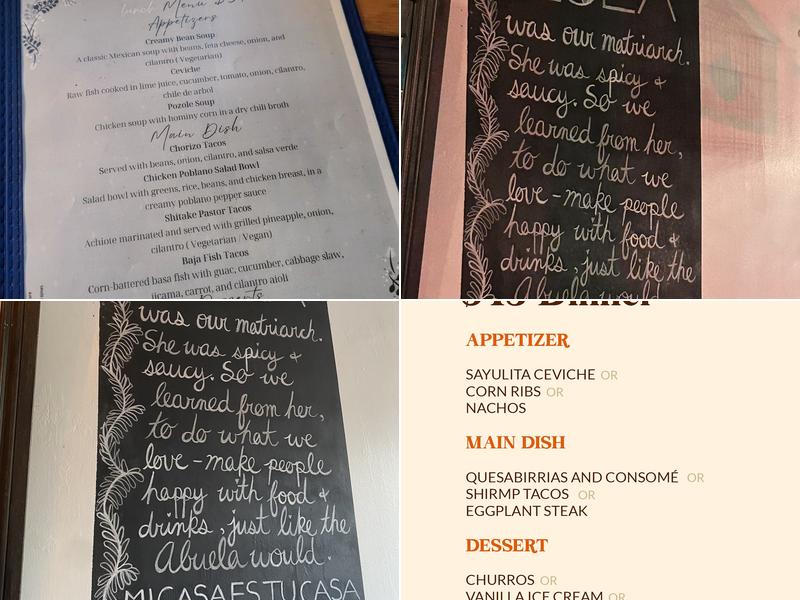 Lunch Menu
Appetizers
Creamy Bean Soup
A classic Mexican soup with beans, feta cheese, onion, and
cilantro ( Vegetarian)
Ceviche
Raw fish cooked in lime juice, cucumber, tomato, onion, cilantro,
chile de arbol
Pozole Soup
Chicken soup with hominy corn in a dry chili broth
Main Dish
Chorizo Tacos
Served with beans, onion, cilantro, and salsa verde
Chicken Poblano Salad Bowl
Salad bowl with greens, rice, beans, and chicken breast, in a
creamy poblano pepper sauce
Shitake Pastor Tacos
Achiote marinated and served with grilled pineapple, onion,
cilantro ( Vegetarian / Vegan)
Baja Fish Tacos
Corn-battered basa fish with guac, cucumber, cabbage slaw,
jicama, carrot, and cilantro aioli
Desserts
was our matriarch.
She was spicy &
saucy. So we
learned from her,
to do what we
love - make people
happy with food &
drinks, just like the
Abuela would
was our matriarch.
She was spicy &
saucy. So we
learned from her,
to do what we
love - make people
happy with food &
drinks, just like the
Abuela would.
MI CASA ES TU CASA
Dinner
APPETIZER
SAYULITA CEVICHE OR
CORN RIBS OR
NACHOS
MAIN DISH
QUESABIRRIAS AND CONSOMÉ OR
SHIRMP TACOS OR
EGGPLANT STEAK
DESSERT
CHURROS OR
VANILLA ICE CREAM OR